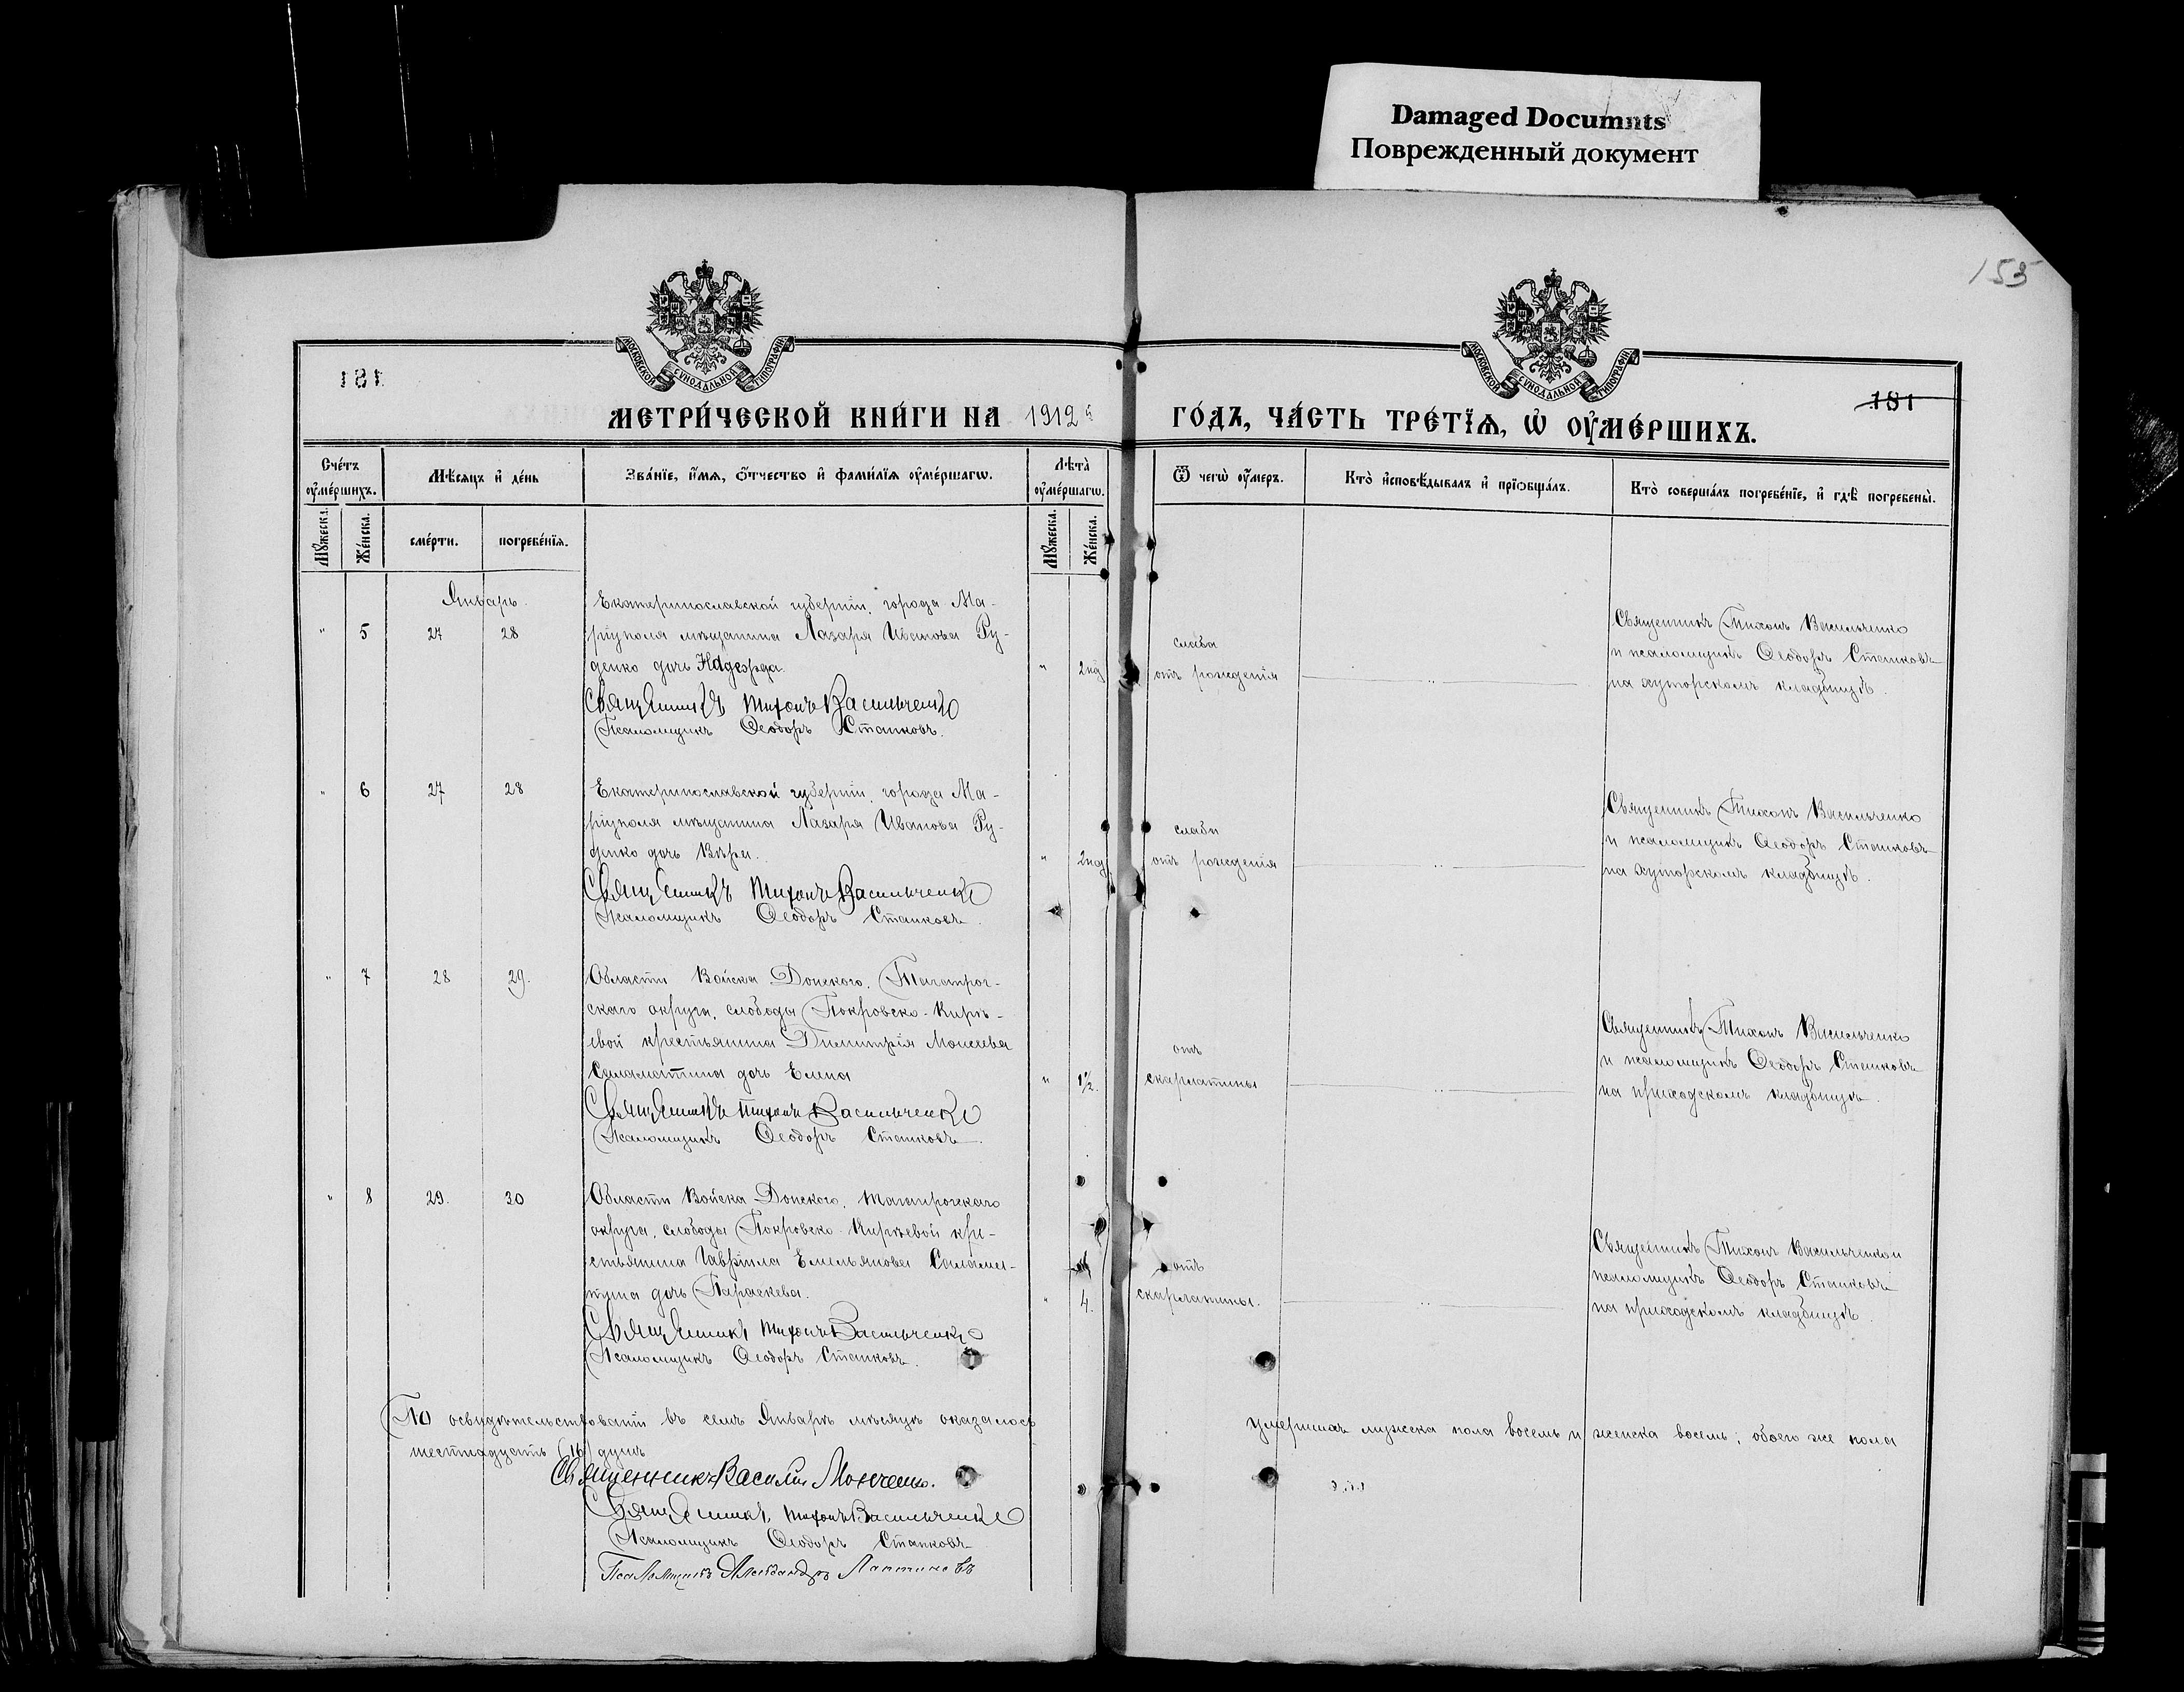 Damaged Documnts
Поврежденный документ
155
МОСКОВСКОЙ СѴНОДАЛЬНОЙ ТИПОГРАФІИ
МОСКОВСКОЙ СѴНОДАЛЬНОЙ ТИПОГРАФІИ
181
181
МЕТРИ́ЧЕСКОЙ КНИ́ГИ НА 1912 й
ГО́ДЪ, ЧА́СТЬ ТРЕ́ТЇѦ, Ѡ҆ ОУ҆МЕ́РШИХЪ.
Сче́тъ оу҆ме́ршихъ.
Мѣ́сяцъ и҆ де́нь
Зва́нїе, и҆́мѧ, ѻ҆́тчество и҆ фами́лїѧ оу҆ме́ршагѡ.
Лѣ́та оу҆ме́ршагѡ.
Ѿ чегѡ̀ оу҆́меръ.
Кто̀ и҆сповѣ́дывалъ и҆ прїѡбща́лъ.
Кто̀ соверша́лъ погребе́нїе, и҆ гдѣ̀ погребены̀.
Мꙋ́жеска.
Же́нска.
сме́рти.
погребе́нїя.
Мꙋ́жеска.
Же́нска.
Январь.
" 5 27 28
Екатеринославской губерніи, города Ма-
ріуполя мѣщанина Лазаря Иванова Ру-
денко дочь Надежда.
Священникъ Тихонъ Васильченко
Псаломщикъ Ѳеодоръ Станковъ.
" 2 нд
слаба
отъ рожденія
Священникъ Тихонъ Васильченко
и псаломщикъ Ѳеодоръ Станковъ
на хуторскомъ кладбищѣ.
" 6 27 28
Екатеринославской губерніи, города Ма-
ріуполя мѣщанина Лазаря Иванова Ру-
денко дочь Вѣра.
Священникъ Тихонъ Васильченко
Псаломщикъ Ѳеодоръ Станковъ.
" 2 нд
слаба
отъ рожденія
Священникъ Тихонъ Васильченко
и псаломщикъ Ѳеодоръ Станковъ
на хуторскомъ кладбищѣ.
" 7 28 29.
Области Войска Донского, Таганрог-
скаго округа, слободы Покровско-Кирѣ-
евой крестьянина Димитрія Моисеева
Саламатина дочь Елена
Священникъ Тихонъ Васильченко
Псаломщикъ Ѳеодоръ Станковъ.
" 1½.
отъ
скарлатины
Священникъ Тихонъ Васильченко
и псаломщикъ Ѳеодоръ Станковъ
на приходскомъ кладбищѣ.
" 8 29. 30
Области Войска Донского, Таганрогскаго
округа, слободы Покровско-Кирѣевой кре-
стьянина Гавріила Емельянова Салама-
тина дочь Параскева.
Священникъ Тихонъ Васильченко
Псаломщикъ Ѳеодоръ Станковъ.
" 4.
отъ
скарлатины.
Священникъ Тихонъ Васильченко и
псаломщикъ Ѳеодоръ Станковъ
на приходскомъ кладбищѣ.
По освидѣтельствованіи въ семъ Январѣ мѣсяцѣ оказалось умершихъ мужеска пола восемь и женска восемь; обоего же пола
шестнадцать (16) душъ
Священникъ Василій
Священникъ Тихонъ Васильченко
Псаломщикъ Ѳеодоръ Станковъ
Псаломщикъ Александръ